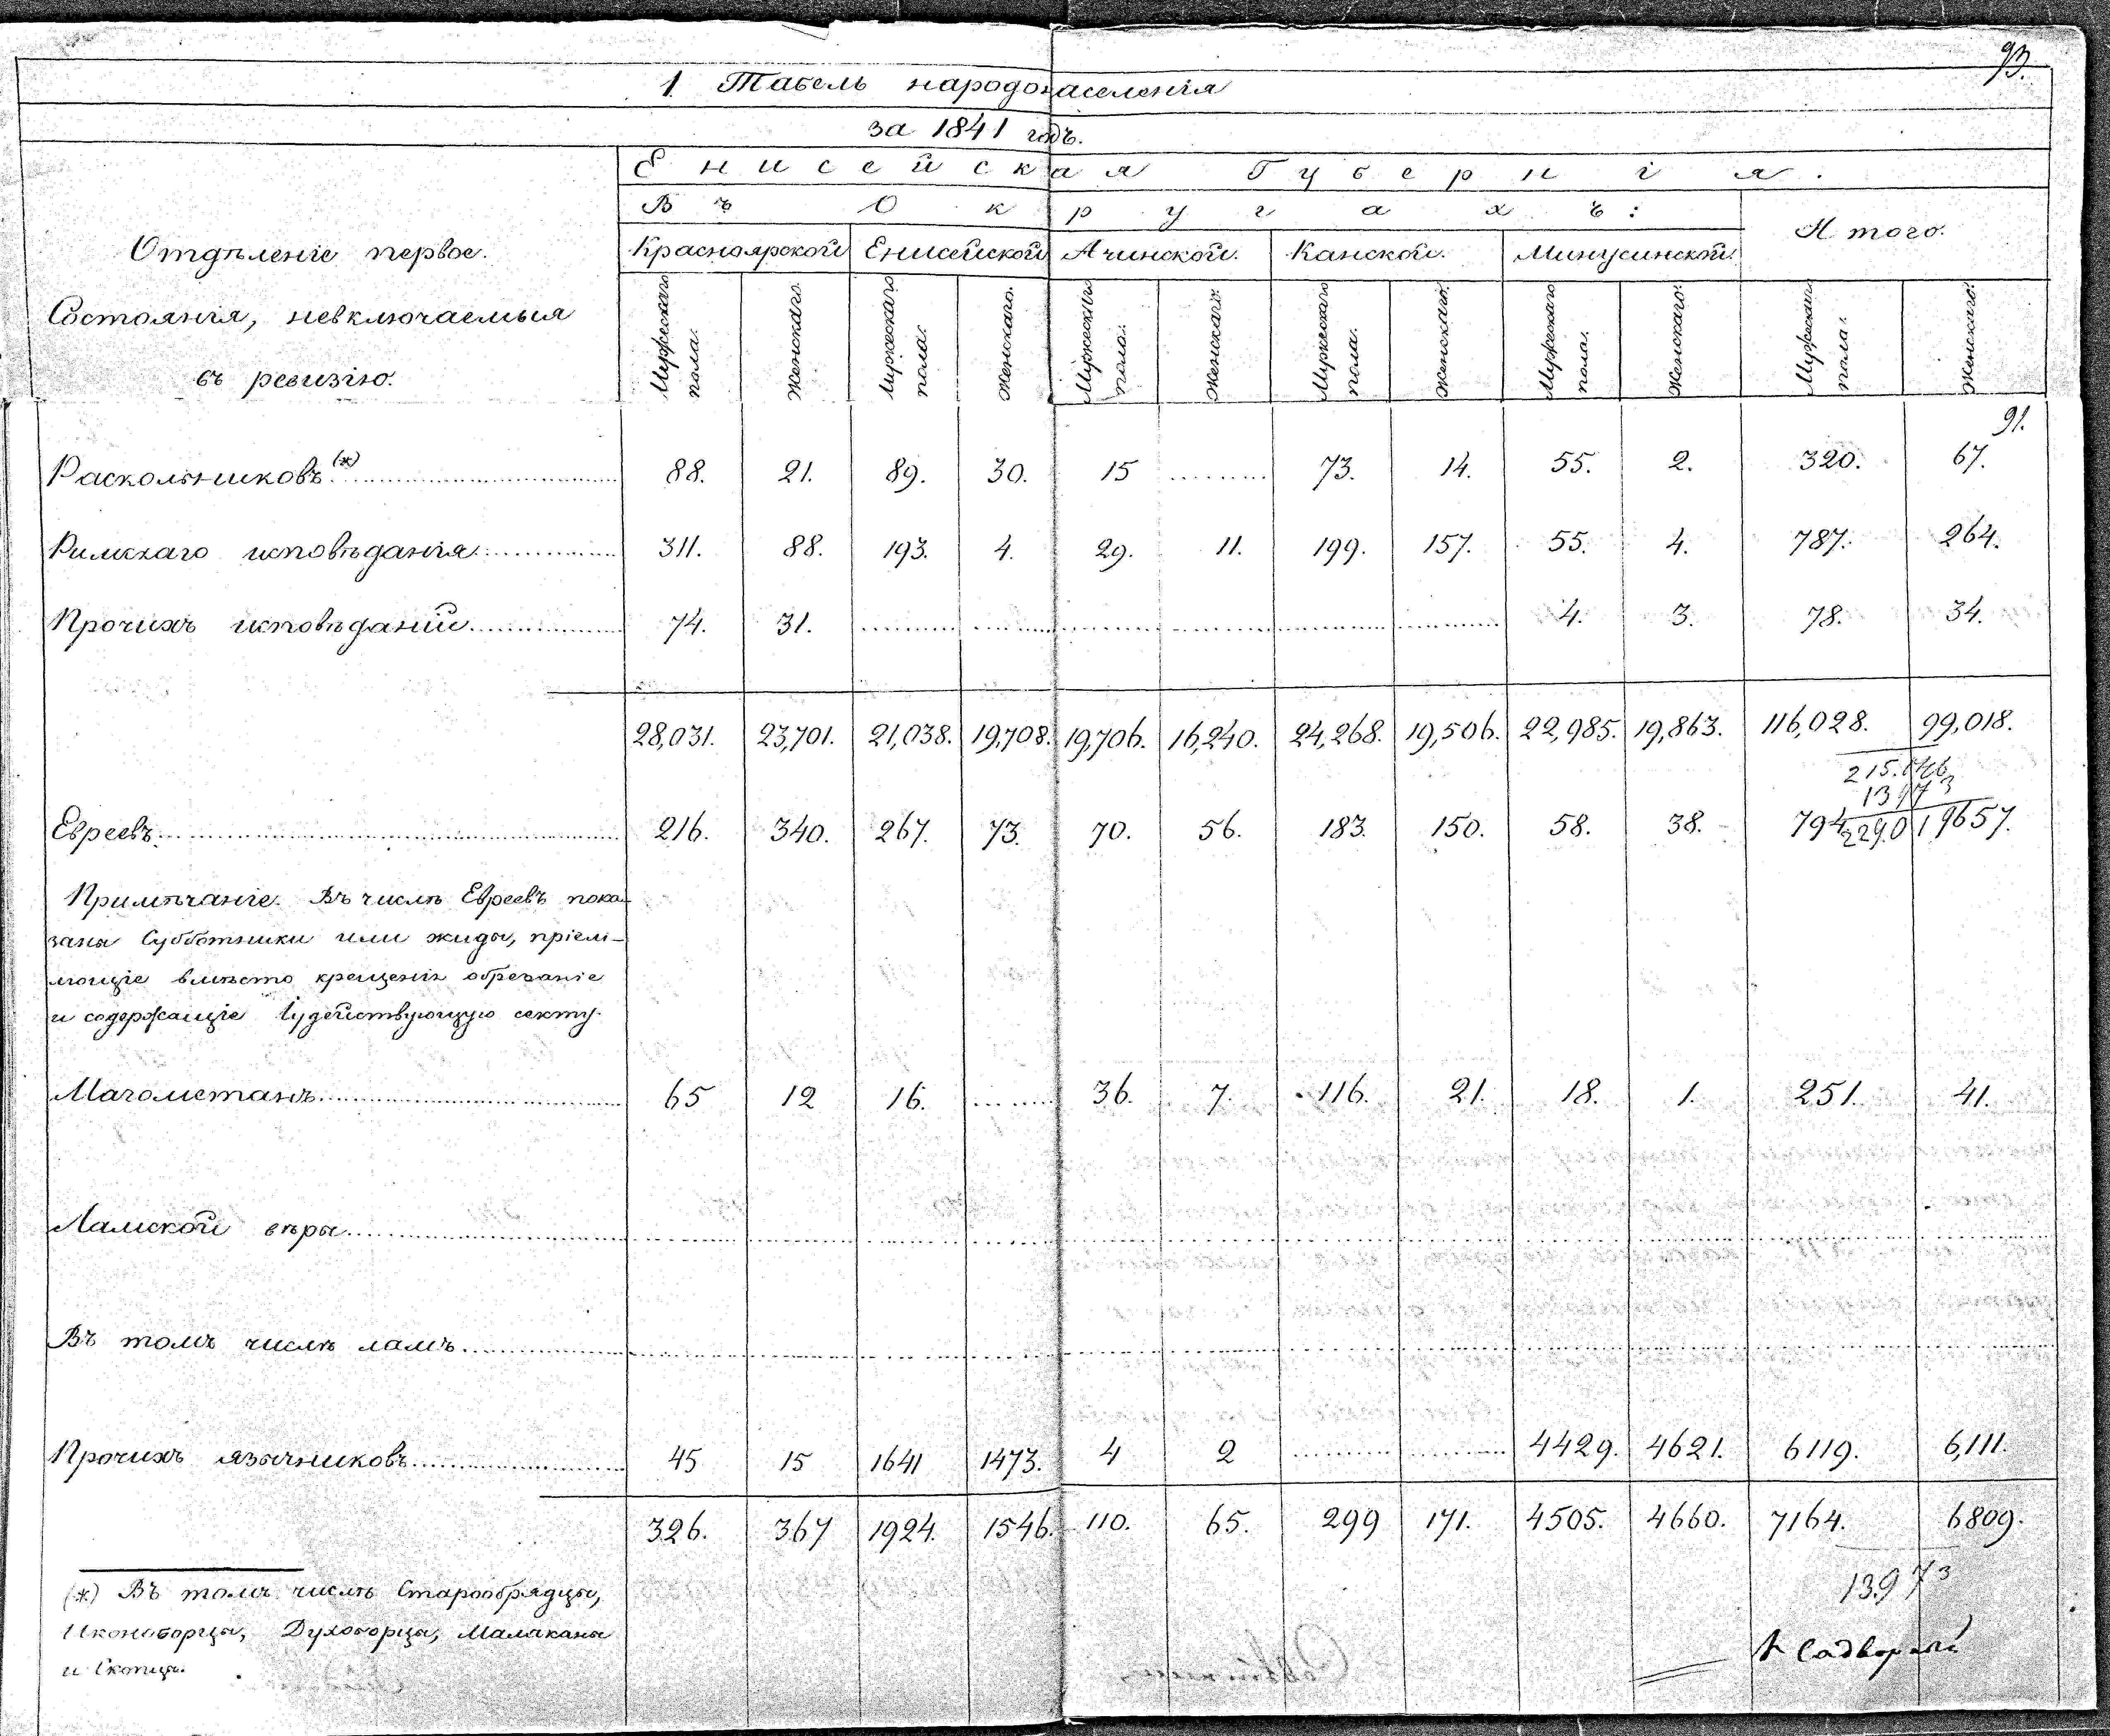 93.
1 Табель народонаселенія
за 1841 годъ.
Енисейская Губернія.
Въ Округахъ:
Итого.
Отдѣленіе первое.
Состоянія, невключаемыя
въ ревизію.
Красноярской Енисейской Ачинской. Канской. Минусинской.
Мужескаго пола. Женскаго. Мужескаго пола. Женскаго. Мужескаго пола. Женскаго. Мужескаго пола. Женскаго. Мужескаго пола. Женскаго. Мужескаго пола. Женскаго.
91.
Раскольниковъ (*) 88. 21. 89. 30. 15 73. 14. 55. 2. 320. 67.
Римскаго исповѣданія 311. 88. 193. 4. 29. 11. 199. 157. 55. 4. 787. 264.
Прочихъ исповѣданій 74. 31. 4. 3. 78. 34.
28,031. 23,701. 21,038. 19,708. 19,706. 16,240. 24,268. 19,506. 22,985. 19,863. 116,028. 99,018.
215.046
13973
22901
Евреевъ 216. 340. 267. 73. 70. 56. 183. 150. 58. 38. 794 657.
Примѣчаніе. Въ числѣ Евреевъ пока-
заны Субботники или жиды, пріемлю-
мощіе вмѣсто крещенія обрезаніе
и содержащіе Іудействующую секту.
Магометанъ 65 12 16. 36. 7. 116. 21. 18. 1. 251. 41.
Ламской вѣры
Въ томъ числѣ ламъ
Прочихъ язычниковъ 45 15 1641 1473. 4 2 4429. 4621. 6119. 6,111.
326. 367 1924. 1546. 110. 65. 299 171. 4505. 4660. 7164. 6809.
13973
(*) Въ томъ числѣ Старообрядцы,
Иконоборцы, Духоборцы, Малаканы
и Скопцы.